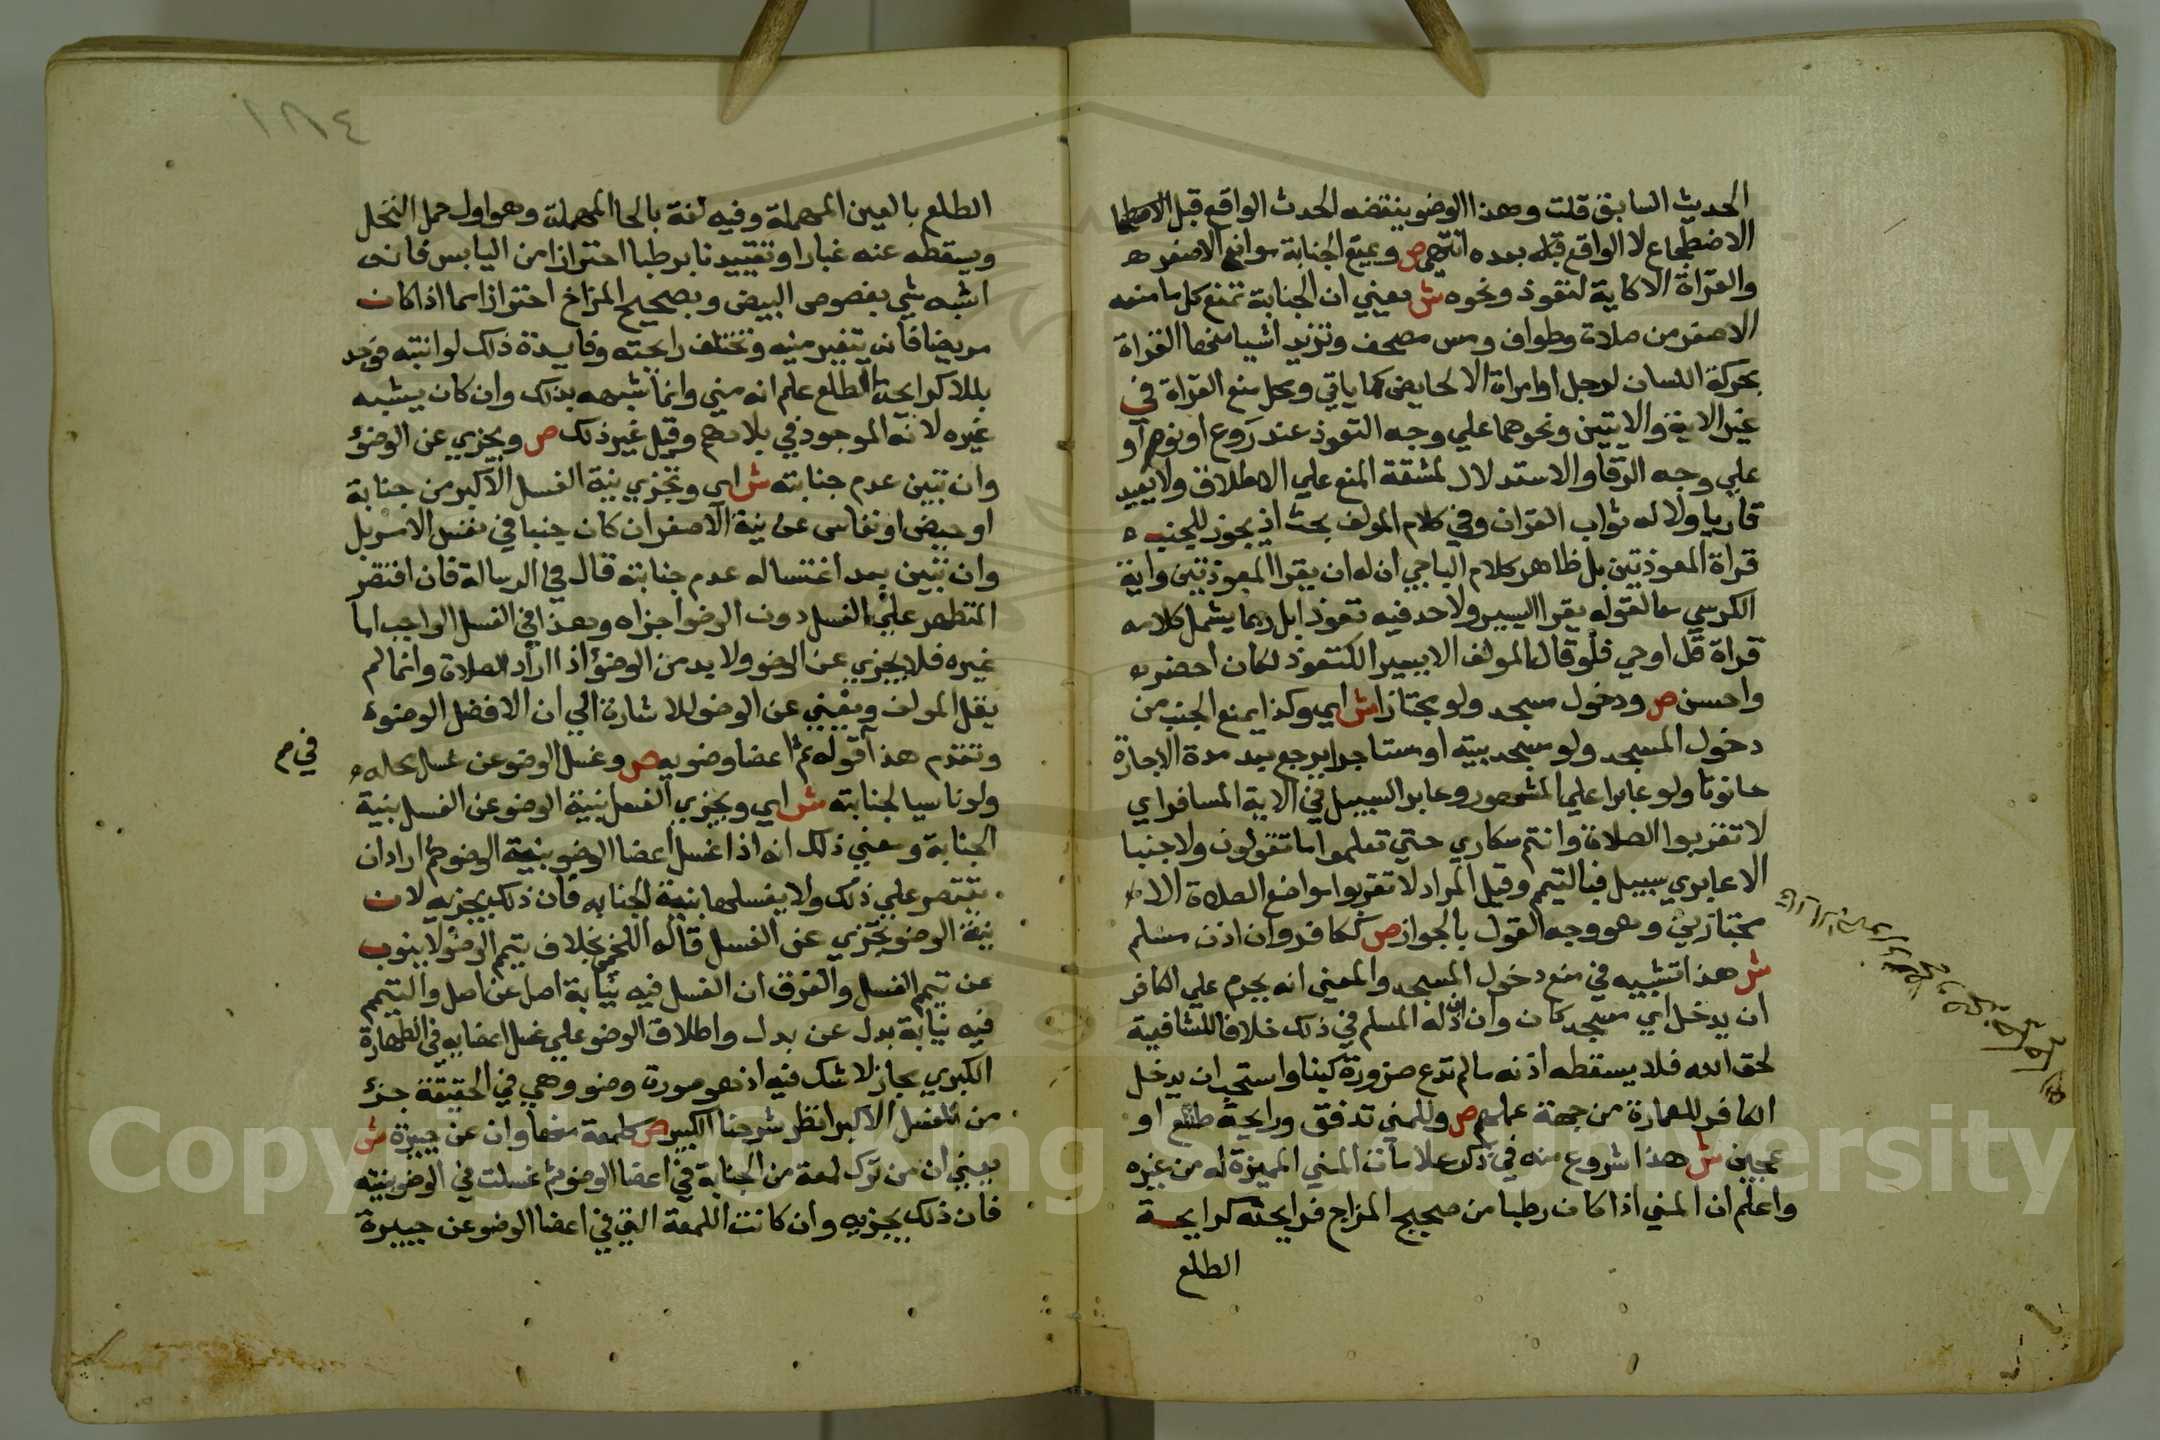 الحديث السابق قلت وهذا الوضو ينقضه الحدث الواقع قبل الاضطجا
الاضطجاع لا الواقع قبله بعده انتهي ص وتمنع الجنابة موانع الاصغر ه
والقراة الا كاية لتعوذ ونحوه ش يعني ان الجنابة تمنع كل ما منعه
الاصغر من صلاة وطواف ومس مصحف وتزيد اشيا منها القراة
بحركة اللسان لرجل او امراة الا لحايض كما ياتي ومحل منع القراة في
غير الاية والايتين ونحوهما علي وجه التعوذ عند روع او نوم او
علي وجه الرقا والاستدلال لمشقة المنع علي الاطلاق ولا يعيد
قاريا ولا له ثواب القران وفي كلام المولف بحث اذ يجوز للجنب ه
قراة المعوذتين بل ظاهر كلام الباجي ان له ان يقرا المعوذتين واية
الكرسي معا لقوله يقرا اليسير ولا حد فيه تعوذا بل ربما يشمل كلامه
قراة قل اوحي فلو قال المولف الا يسيرا لكتعوذ لكان اخصر ه
واحسن ص ودخول مسجد ولو مجتازا ش اي وكذا يمنع الجنب من
دخول المسجد ولو مسجد بيته او مستاجرا يرجع بعد مدة الاجارة
حانوتا ولو عابرا علي المشهور وعابر السبيل في الاية المسافر اي
لا تقربوا الصلاة وانتم سكاري حتي تعلموا ما تقولون ولا جنبا
الا عابري سبيل فبالتيمم وقيل المراد لا تقربوا مواضع الصلاة الا
مجتازين وهو وجه القول بالجواز ص ككافر وان اذن مسلم
ش هذا تشبيه في منع دخول المسجد والمعني انه يحرم علي الكافر
ان يدخل اي مسجد كان وان اذن له المسلم في ذلك خلافا للشافعية
لحق الله فلا يسقطه اذنه ما لم تدع ضرورة كبنا واستحب ان يدخل
الكافر للعمارة من جهة عملهم ص وللمني تدفق ورايحة طلع او
عجين ش هذا شروع منه في ذكر علامات المني المميزة له من غيره
واعلم ان المني اذا كان رطبا من صحيح المزاج فرايحته كرايحة
الطلع
١٨٤
الطلع بالعين المهملة وفيه لغة بالحا المهملة وهو اول حمل النخل
ويسقط عنه غبار او تقييدنا برطبا احترازا من اليابس فانه
اشبه شي بفصوص البيض وبصحيح المزاخ احترازا مما اذا كان
مريضا فانه يتغير منيه وتختلف رايحته وفايدة ذلك لو انتبه فوجد
بللا كرايحة الطلع علم انه مني وانما شبهه بذلك وان كان يشبه
غيره لانه الموجود في بلادهم وقيل غير ذلك ص ويجزي عن الوضؤ
وان تبين عدم جنابته ش اي وتجزي نية الغسل الاكبر من جنابة
او حيض او نفاس عن نية الاصغر ان كان جنبا في نفس الامر بل
وان تبين بعد اغتساله عدم جنابته قال في الرسالة فان اقتصر
المتطهر علي الغسل دون الوضو اجزاه وهذا في الغسل الواجب اما
غيره فلا يجزي عن الوضو ولا بد من الوضؤ اذا اراد الصلاة وانما لم
يقل المولف ويغني عن الوضو للاشارة الي ان الافضل الوضوء
وتقدم هذا قوله ثم اعضا وضويه ص وغسل الوضو عن غسل محله ه
في م
ولو ناسيا لجنابته ش اي ويجزي الغسل بنية الوضو عن الغسل بنية
الجنابة ومعني ذلك انه اذا غسل اعضا الوضو بنية الوضو ثم اراد ان
يقتصر علي ذلك ولا يغسلها بنية الجنابه فان ذلك يجزيه لان
نية الوضو تجزي عن الغسل قاله اللخمي بخلاف تيمم الوضو لا ينوب
عن تيمم الغسل والفرق ان الغسل فيه نيابة اصل عن اصل والتيمم
فيه نيابة بدل عن بدل واطلاق الوضو علي غسل اعضايه في الطهارة
الكبري مجاز لا شك فيه اذ هو صورة وضو وهي في الحقيقة جزء
من الغسل الاكبر انظر شرحنا الكبير ص كلمعة منها وان عن جبيرة ش
يعني ان من ترك لمعة من الجنابة في اعضا الوضو ثم غسلت في الوضو بنيته
فان ذلك يجزيه وان كانت اللمعة التي في اعضا الوضو عن جبيرة
Copyright © King Saud University